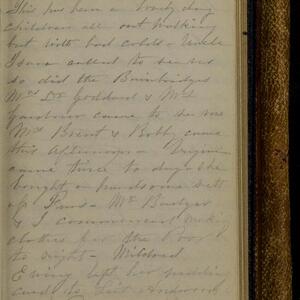 This has been a lovely day
Children all out walking
but with bad colds - Uncle
Isaac called to see us
so did the Bainbridges
Mrs Dr Goddard & Mrs
Gardner came to see me
Mrs Brent & Bobby came
this afternoon - Virginia
came twice to day she
bought a handsome sett
of Furs - Mrs Badger
& I commenced making
clothes for the Poor
to night - Mildred
Ewing left her wedding
cards